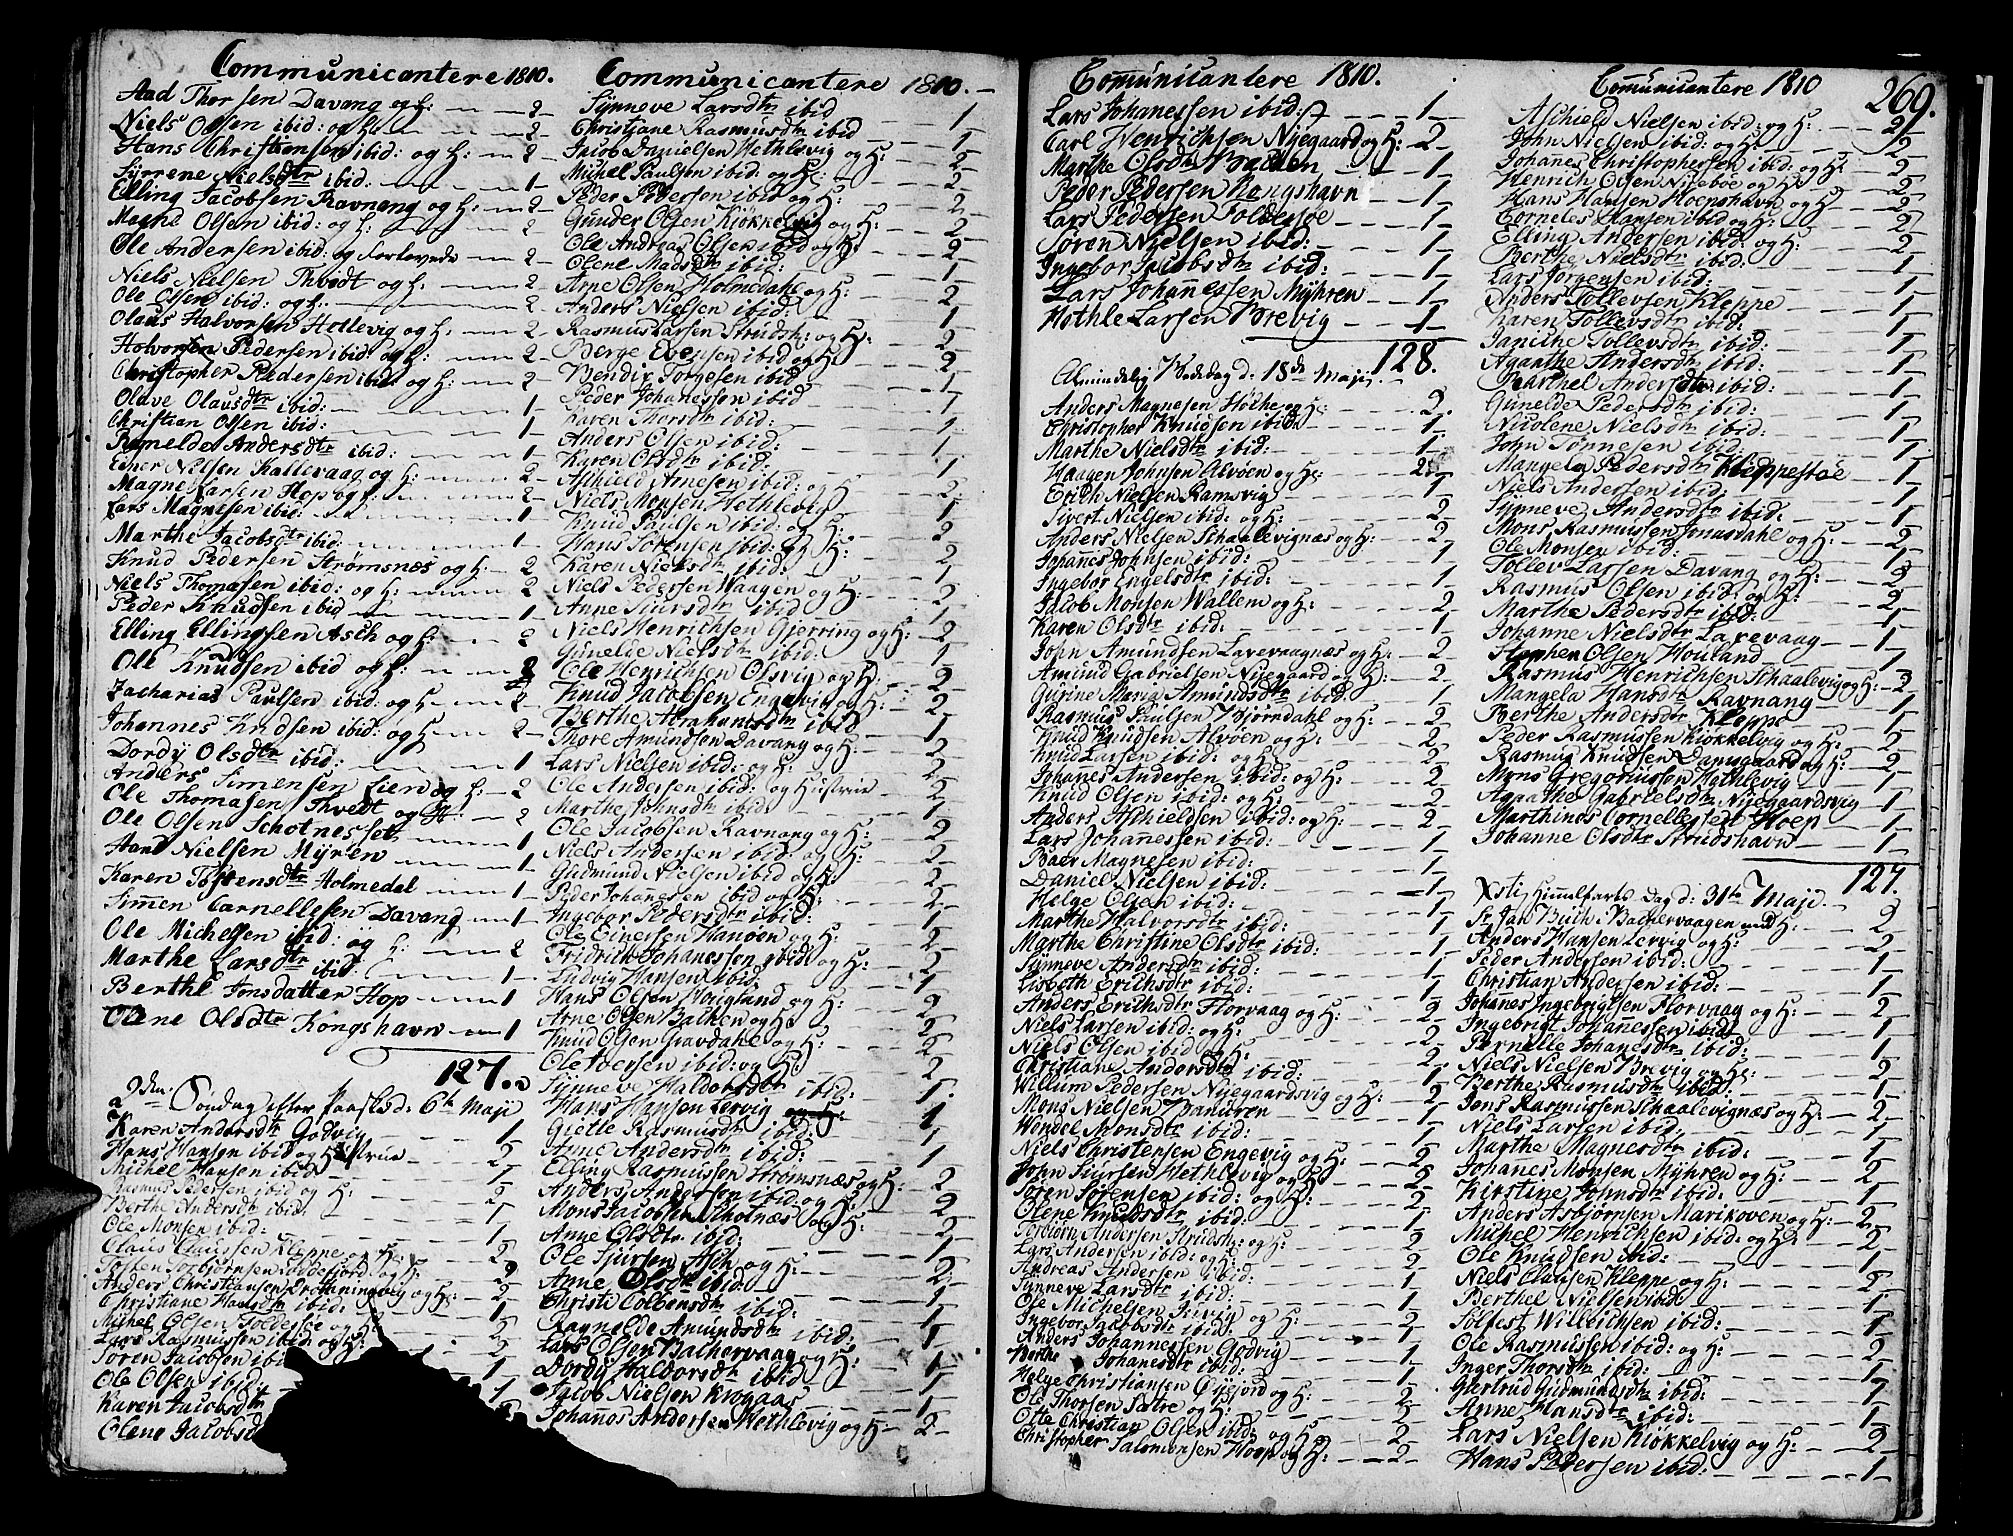 Communicantere 1810.
Aad Thorsen Davang og H: 2
Niels Olsen ibid: og H: 2
Hans Christensen ibid: og H: 2
Sÿrrene Nielsdtr ibid: 1
Elling Jacobsen Ravnang og H: 2
Magne Olsen ibid: og H: 2
Ole Andersen ibid: og forlovede 2
Niels Nielsen Thvedt og H: 2
Ole Olsen ibid: og H: 2
Olaus Halvorsen Hollevig og H: 2
Holvorsen Pedersen ibid: og H: 2
Christopher Pedersen ibid: og H: 2
Olave Olausdtr ibid: 1
Christian Olsen ibid: 1
Andersdtr ibid: 1
Einer Nielsen Kallevaag og H: 2
Magne Larsen Hop og H: 2
Lars Magnesen ibid: 1
Marthe Jacobsdtr ibid: 1
Knud Pedersen Strømsnæs og H: 2
Niels Thomasen ibid: og H: 2
Peder Knudsen ibid 1
Elling Ellingsen Asch og H: 2
Ole Knudsen ibid og H: 2
Zacharias Paulsen ibid: og H 2
Johannes Knudsen ibid: og H 2
Dordÿ Olsdtr ibid: 1
Anders Simensen Lien og H: 2
Ole Thomasen Thvedt og H: 2
Ole Olsen Schotnesset 1
Hans Nielsen Mÿren 1
Karen Tostensdtr Holmedal 1
Simen Cornellesen Davang 1
Ole Michelsen ibid: og H: 2
Marthe Larsdtr ibid: 1
Berthe Jonsdatter Hop 1
Olene Olsdtr Kongshavn 1
127.
2den Søndag efter Paaske d: 6te Maji
Karen Andersdtr Godvig 1
Hans Hansen ibid og Hustrue 2
Michel Hansen ibid 1
Rasmus Pedersen ibid og H: 2
Berthe Andersdtr ibid. 1
Ole Monsen ibid: 1
Claus Claussen Kleppe og H: 2
Tosten Torbjørnsen og H: 2
Anders Christiansen Dronningvig og H: 2
Christiane Hansdtr ibid: 1
Michel Olsen Foldersøe og H: 2
Lars Rasmussen ibid og H: 2
Søren Jacobsen ibid 1
Ole Olsen ibid: 1
Karen Jacobsdtr
Olene Jacobsd
Communicantere 1810.
Sÿnneve Larsdtr ibid 1
Christiane Rasmusdtr ibid 1
Jacob Danielsen Hethlevig og H: 2
Michel Paulsen ibid: og H: 2
Peder Pedersen ibid og H: 2
Gunder Olsen Kiøkkelvig og H: 2
Ole Andreas Olsen ibid og H: 2
Olene Madsdtr ibid: 1
Arne Olsen Holmedahl og H: 2
Anders Nielsen ibid: 1
Rasmus Larsen Strudsh: og H: 2
Berge Evensen ibid og H: 2
Bendix Torgesen ibid 1
Peder Johanessen ibid 1
Karen Thorsdtr ibid: 1
Anders Olsen ibid: 1
Karen Olsdtr ibid: 1
Aschield Arnesen ibid: og H 2
Niels Monsen Hethlevig 1
Knud Paulsen ibid: og H: 2
Hans Sørensen ibid: og H: 2
Karen Nielsdtr ibid: 1
Niels Pedersen Waagen og H: 2
Anne Siursdtr ibid 1
Niels Henrichsen Gjerring og H: 2
Gunelde Nielsdtr ibid: 1
Ole Henrichsen Olsvig og H: 2
Knud Jacobsen Engevig og H: 2
Berthe Abrahamsdtr ibid 1
Thore Amundsen Davang og H: 2
Lars Nielsen ibid: og H: 2
Ole Andersen ibid: og Hustrue 2
Marthe Johnsdtr ibid: 1
Ole Jacobsen Ravnang og H: 2
Niels Andersen ibid: og H: 2
Gudmund Nielsen ibid og H: 2
Peder Johannesen ibid og H: 2
Ingebor Pedersdtr ibid: 1
Ole Einersen Hanøen og H: 2
Fridrich Johanessen ibid og H: 2
Ludvig Hansen ibid: 1
Hans Olsen Hougland og H: 2
Arne Olsen Bachen og H: 2
Knud Olsen Gravdahl og H: 2
Ole Iversen ibid: og H: 2
Sÿnneve Haldorsdtr ibid: 1
Hans Hansen Lervig 1
Giette Rasmusdtr ibid: 1
Anne Andersdtr ibid: 1
Elling Rasmussen Strømsnæs og H: 2
Anders Andersen ibid og H: 2
Mons Jacobsen Schotnæs og H: 2
Anne Olsdtr ibid: 1
Ole Sjursen Asch og H: 2
Anne Olsdtr ibid: 1
Christi Colbensdtr ibid: 1
Ragnelde Amundsdtr ibid: 1
Lars Olsen Bachervaag og H: 1
Dordÿ Haldorsdtr ibid 1
Jacob Nielsen Krogaas 1
Johanes Andersen Hethlevig og H: 2
Communicantere 1810.
Lars Johanessen ibid: 1
Carl Henrichsen Nÿegaard og H: 2
Marthe Olsdtr Bratten 1
Peder Pedersen Kongshavn 1
Lars Pedersen Foldersøe 1
Søren Nielsen ibid: 1
Ingebor Jacobsdtr ibid: 1
Lars Johannessen Mÿhren 1
Hothle Larsen Brevig 1
128.
Almindelig Bededag d: 18de Maji
Anders Magnesen Holthe og H: 2
Christopher Knudsen ibid: 1
Marthe Nielsdtr ibid: 1
Haagen Johnsen Alvøen og H: 2
Erich Nielsen Ramsvig 1
Sivert Nielsen ibid: og H: 2
Anders Nielsen Schaalevignæs og H: 2
Johannes Johnsen ibid: 1
Ingebor Engelsdtr ibid: 1
Jacob Monsen Wallem og H: 2
Karen Olsdtr ibid: 1
John Amundsen Lavevaagnæs og H: 2
Amund Gabrielsen Nÿegaard og H: 2
Gurine Maria Amundsdtr ibid: 1
Rasmus Paulsen Biørndahl og H: 2
Knud Knudsen Alvøen og H: 2
Knud Larsen ibid: og H: 2
Johanes Andersen ibid: og H: 2
Knud Olsen ibid: og H: 2
Anders Aschieldsen ibid: og H: 2
Lars Johannessen ibid: 1
Baer Magnesen ibid: 1
Daniel Nielsen ibid: 1
Helge Olsen ibid: 1
Marthe Halvorsdtr ibid: 1
Marthe Christine Olsdtr ibid: 1
Sÿnneve Andersdtr ibid: 1
Lisbeth Erichsdtr ibid: 1
Anders Erichsdtr Florvaag og H: 2
Niels Larsen ibid: og H: 2
Niels Olsen ibid og H: 2
Christiane Andersdtr ibid: 1
Willum Pedersen Nÿegaardsvig og H: 2
Mons Nielsen Banuren 1
Wendel Monsdtr ibid: 1
Niels Christensen Engevig og H: 2
John Siursen Hethlevig og H: 2
Søren Sørensen ibid: og H: 2
Olene Knudsdtr ibid: 1
Torbiørn Andersen Strudsh: og H: 2
Lars Andersen ibid: og H: 2
Andreas Andersen ibid: 1
Sÿnneve Larsdtr ibid: 1
Ole Michelsen Brevig og H: 2
Ingebor Jacobsdtr ibid: 1
Anders Johannessen Godvig 1
Berthe Johanesdtr ibid: 1
Helge Christiansen og H: 2
Ole Thorsen Sætre og H: 2
Otte Christian Olsen ibid: og H: 2
Christopher Salomonsen Hoop og H: 2
Communicantere 1810
269.
Aschield Nielsen ibid: og H: 2
John Nielsen ibid: og H: 2
Johanes Christophersen ibid: og H: 2
Henrich Olsen Nÿebøe og H: 2
Hans Hansen Hoenshavn og H: 2
Corneles Hansen ibid og H: 2
Elling Andersen ibid: og H: 2
Berthe Nielsdtr ibid: 1
Lars Jørgensen ibid: 1
Anders Tollevsen Kleppe 1
Karen Tollevsdtr ibid: 1
Janiche Tollevsdtr ibid: 1
Agaathe Andersdtr ibid: 1
Barthel Andersdtr ibid: 1
Gunelde Pedersdtr ibid: 1
Nicolene Nielsdtr ibid: 1
John Tønnesen ibid: 1
Mangela Pedersdtr Kleppestøe 1
Niels Andersen ibid: 1
Sÿnneve Andersdtr ibid: 1
Mons Rasmussen Jonasdahl og H: 2
Ole Monsen ibid: 1
Tollev Larsen Davang og H: 2
Rasmus Olsen ibid: og H: 2
Marthe Pedersdtr ibid: 1
Johanne Nielsdtr Larevaag 1
Stephen Olsen Houland 1
Rasmus Henrichsen Schaalevig og H: 2
Mangela Hansdtr Ravnang 1
Berthe Andersdtr Kleppe 1
Peder Rasmussen Kiøkkelvig og H: 2
Rasmus Knudsen og H: 2
Mons Gregoriussen Hethlevig 1
Agaathe Gabrielsdtr Nÿegaardsvig 1
Marthinos Cornellesen Hoep 1
Johanne Olsdtr Strudshavn 1
127.
Xsti Himmelfarts Dag d: 31te Maji
Sr. Jan Buch Bachervaagen med H: 2
Anders Hansen Lervig og H: 2
Peder Andersen ibid: 1
Christian Andersen ibid: 1
Johanes Ingebrigtsen Florvaag og H: 2
Ingebrigt Johannessen ibid: 1
Pernelle Johanesdtr ibid: 1
Niels Nielsen Brevig og H: 2
Berthe Rasmusdtr ibid: 1
Jens Rasmussen Schaalevignæs og H: 2
Niels Larsen ibid: 1
Marthe Magnesdtr ibid: 1
Johanes Monsen Mÿhren og H: 2
Kirstine Johnsdtr ibid: 1
Anders Asbjørnsen Marikoven og H: 2
Michel Henrichsen ibid: og H: 2
Ole Knudsen ibid: 1
Niels Clausen Kleppe og H: 2
Berthel Nielsen ibid: 1
Solfest Willichsen ibid: 1
Ole Rasmussen ibid: og H: 2
Inger Thorsdtr ibid: 1
Giertrud Gudmundsdtr ibid: 1
Anne Hansdtr ibid: 1
Lars Nielsen Kiøkkelvig og H: 2
Hans Pedersen ibid: 1